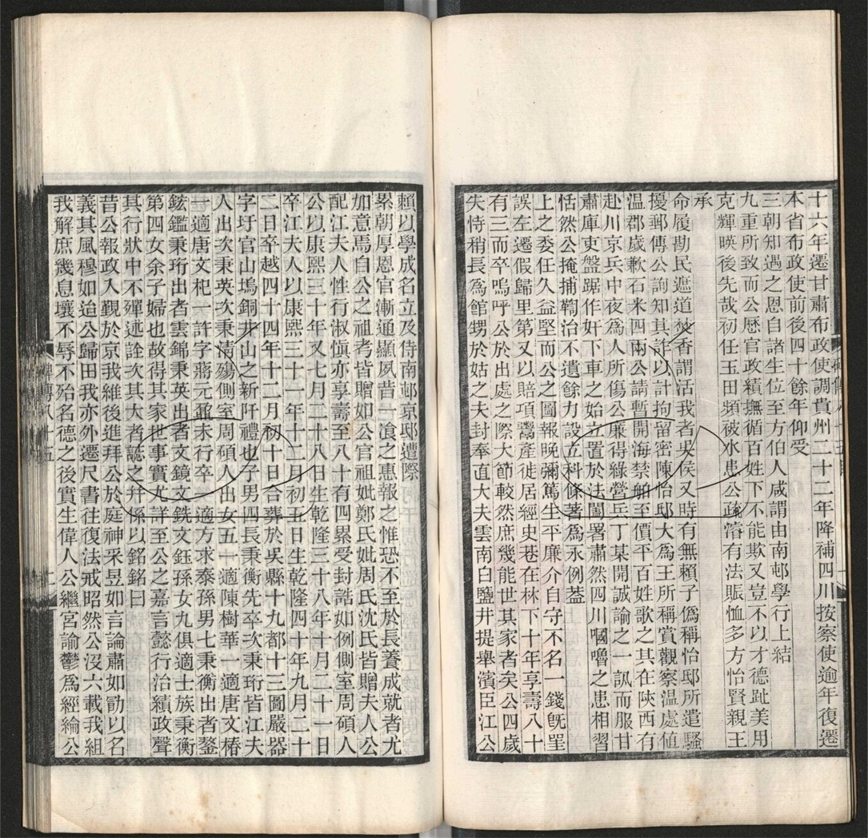 十六年遷甘肅布政使調貴州二十二年降補四川按察使逾年復遷
本省布政使前後四十餘年仰受
三朝知遇之恩自諸生位至方伯人咸謂由南邨學行上結
九重所致而公歷官政績撫循百姓下不能欺又豈不以才德趾美用
克輝暎後先哉初任玉田頻被水患公疏濬有法賑恤多方怡賢親王
承
命履勘民遮道焚香謂活我者吳侯又時有無賴子偽稱怡邸所遣騷
擾郵傳公詢知其詐以計拘留密陳怡邸大為王所稱賞觀察温處值
温郡歲歉石米四兩公請暫開海禁船至價平百姓歌之其在陝西有
赴川京兵中夜為人所傷公廉得綠營兵丁某開誠諭之一訊而服甘
肅庫吏盤踞作奸下車之始立置於法闔署肅然四川嘓嚕之患相習
恬然公掩捕鞫治不遺餘力設立科條著為永例蓋
上之委任久益堅而公之圖報晚彌篤生平廉介自守不名一錢旣罣
誤左遷假歸里第又以賠項鬻產徒居經史巷在林下十年享壽八十
有三而卒嗚呼公於出處之際大節較然庶幾能世其家者矣公四歲
失恃稍長為館甥於姑之夫封奉直大夫雲南白鹽井提舉濱臣江公
賴以學成名立及侍南邨京邸遭際
累朝厚恩官漸通顯夙昔一飡之惠報之惟恐不至於長養成就者尤
如意焉自公之祖考皆贈如公官祖妣鄭氏妣周氏沈氏皆贈夫人公
配江夫人性行淑慎亦享壽至八十有四累受封誥如例側室周碩人
公以康熙三十年又七月二十八日生乾隆三十八年十月二十一日
卒江夫人以康熙三十一年十二月初五日生乾隆四十年九月二十
二日卒越四十四年十二月初十日合葬於吳縣十九都十三圖嚴器
字圩官山塢銅井山之新阡禮也子男四長秉衡先卒次秉珩皆江夫
人出次秉英次秉清殤側室周碩人出女五一適陳樹華一適唐文椿
一適唐文杞一許字蔣元益未行卒一適方求泰孫男七秉衡出者鏊
鉉鑑秉珩出者雲錦秉英出者文鏡文銑文鈺孫女九俱適士族秉衡
第四女余子婦也故得其家世事實尤詳至公之嘉言懿行治績政聲
其行狀中不殫述詮次其大者誌之并係以銘銘曰
昔公報政入覲於京我維後進拜公於庭神釆昱如言論肅如勖以名
義其風穆如迨公歸田我亦外遷尺書往復法戒昭然公沒六載我組
我解庶幾息壤不辱不殆名德之後實生偉人公繼宮諭鬱為經綸公